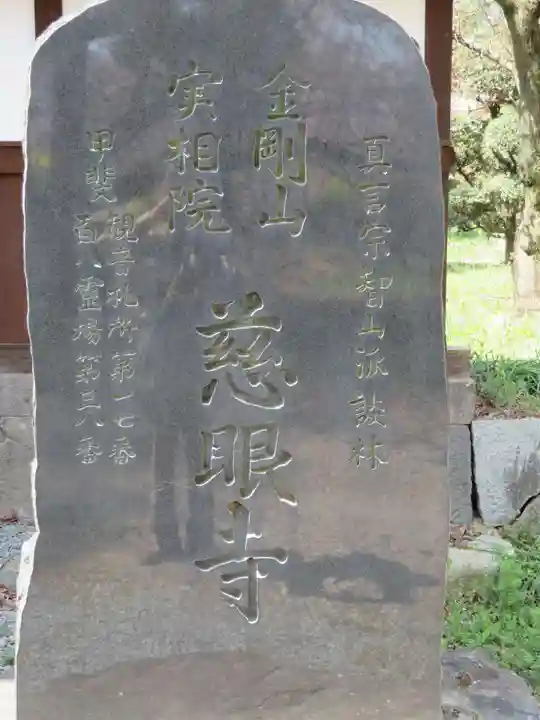 真言宗智山派談林
金剛山
実相院
慈眼寺
甲斐
観音札所第十七番
百八霊場第三八番